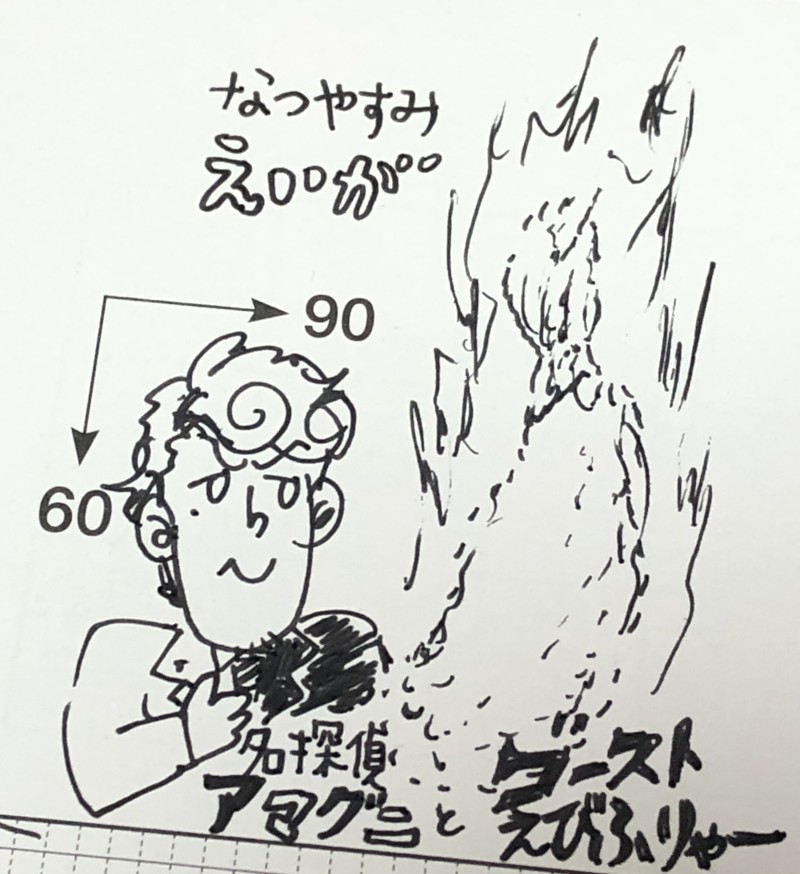 なつやすみ
えいが
90
60
名探偵
アマグニと
ゴースト
えびふりゃー